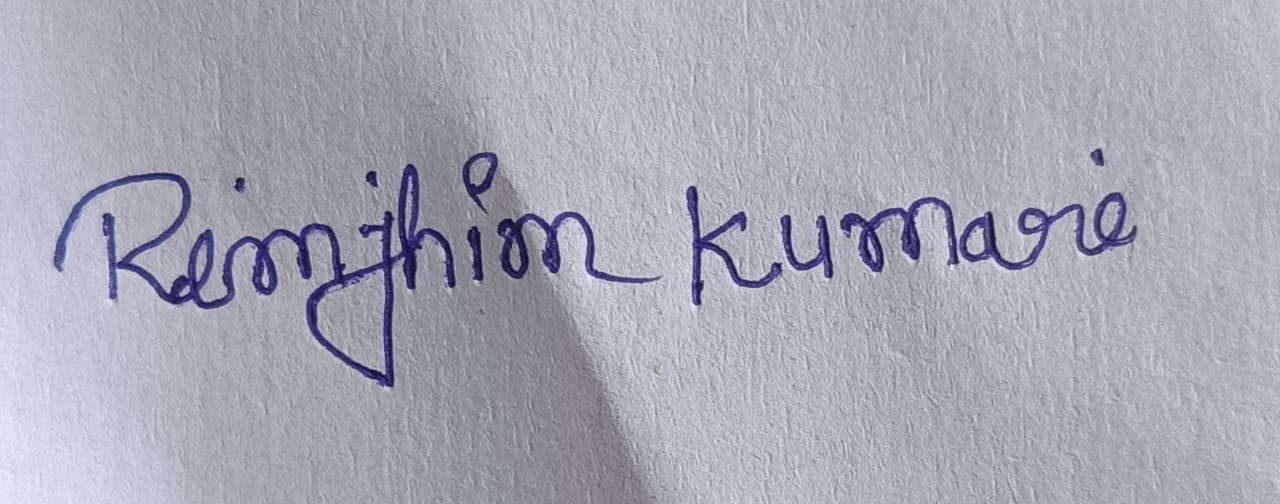 Rimjhim Kumari